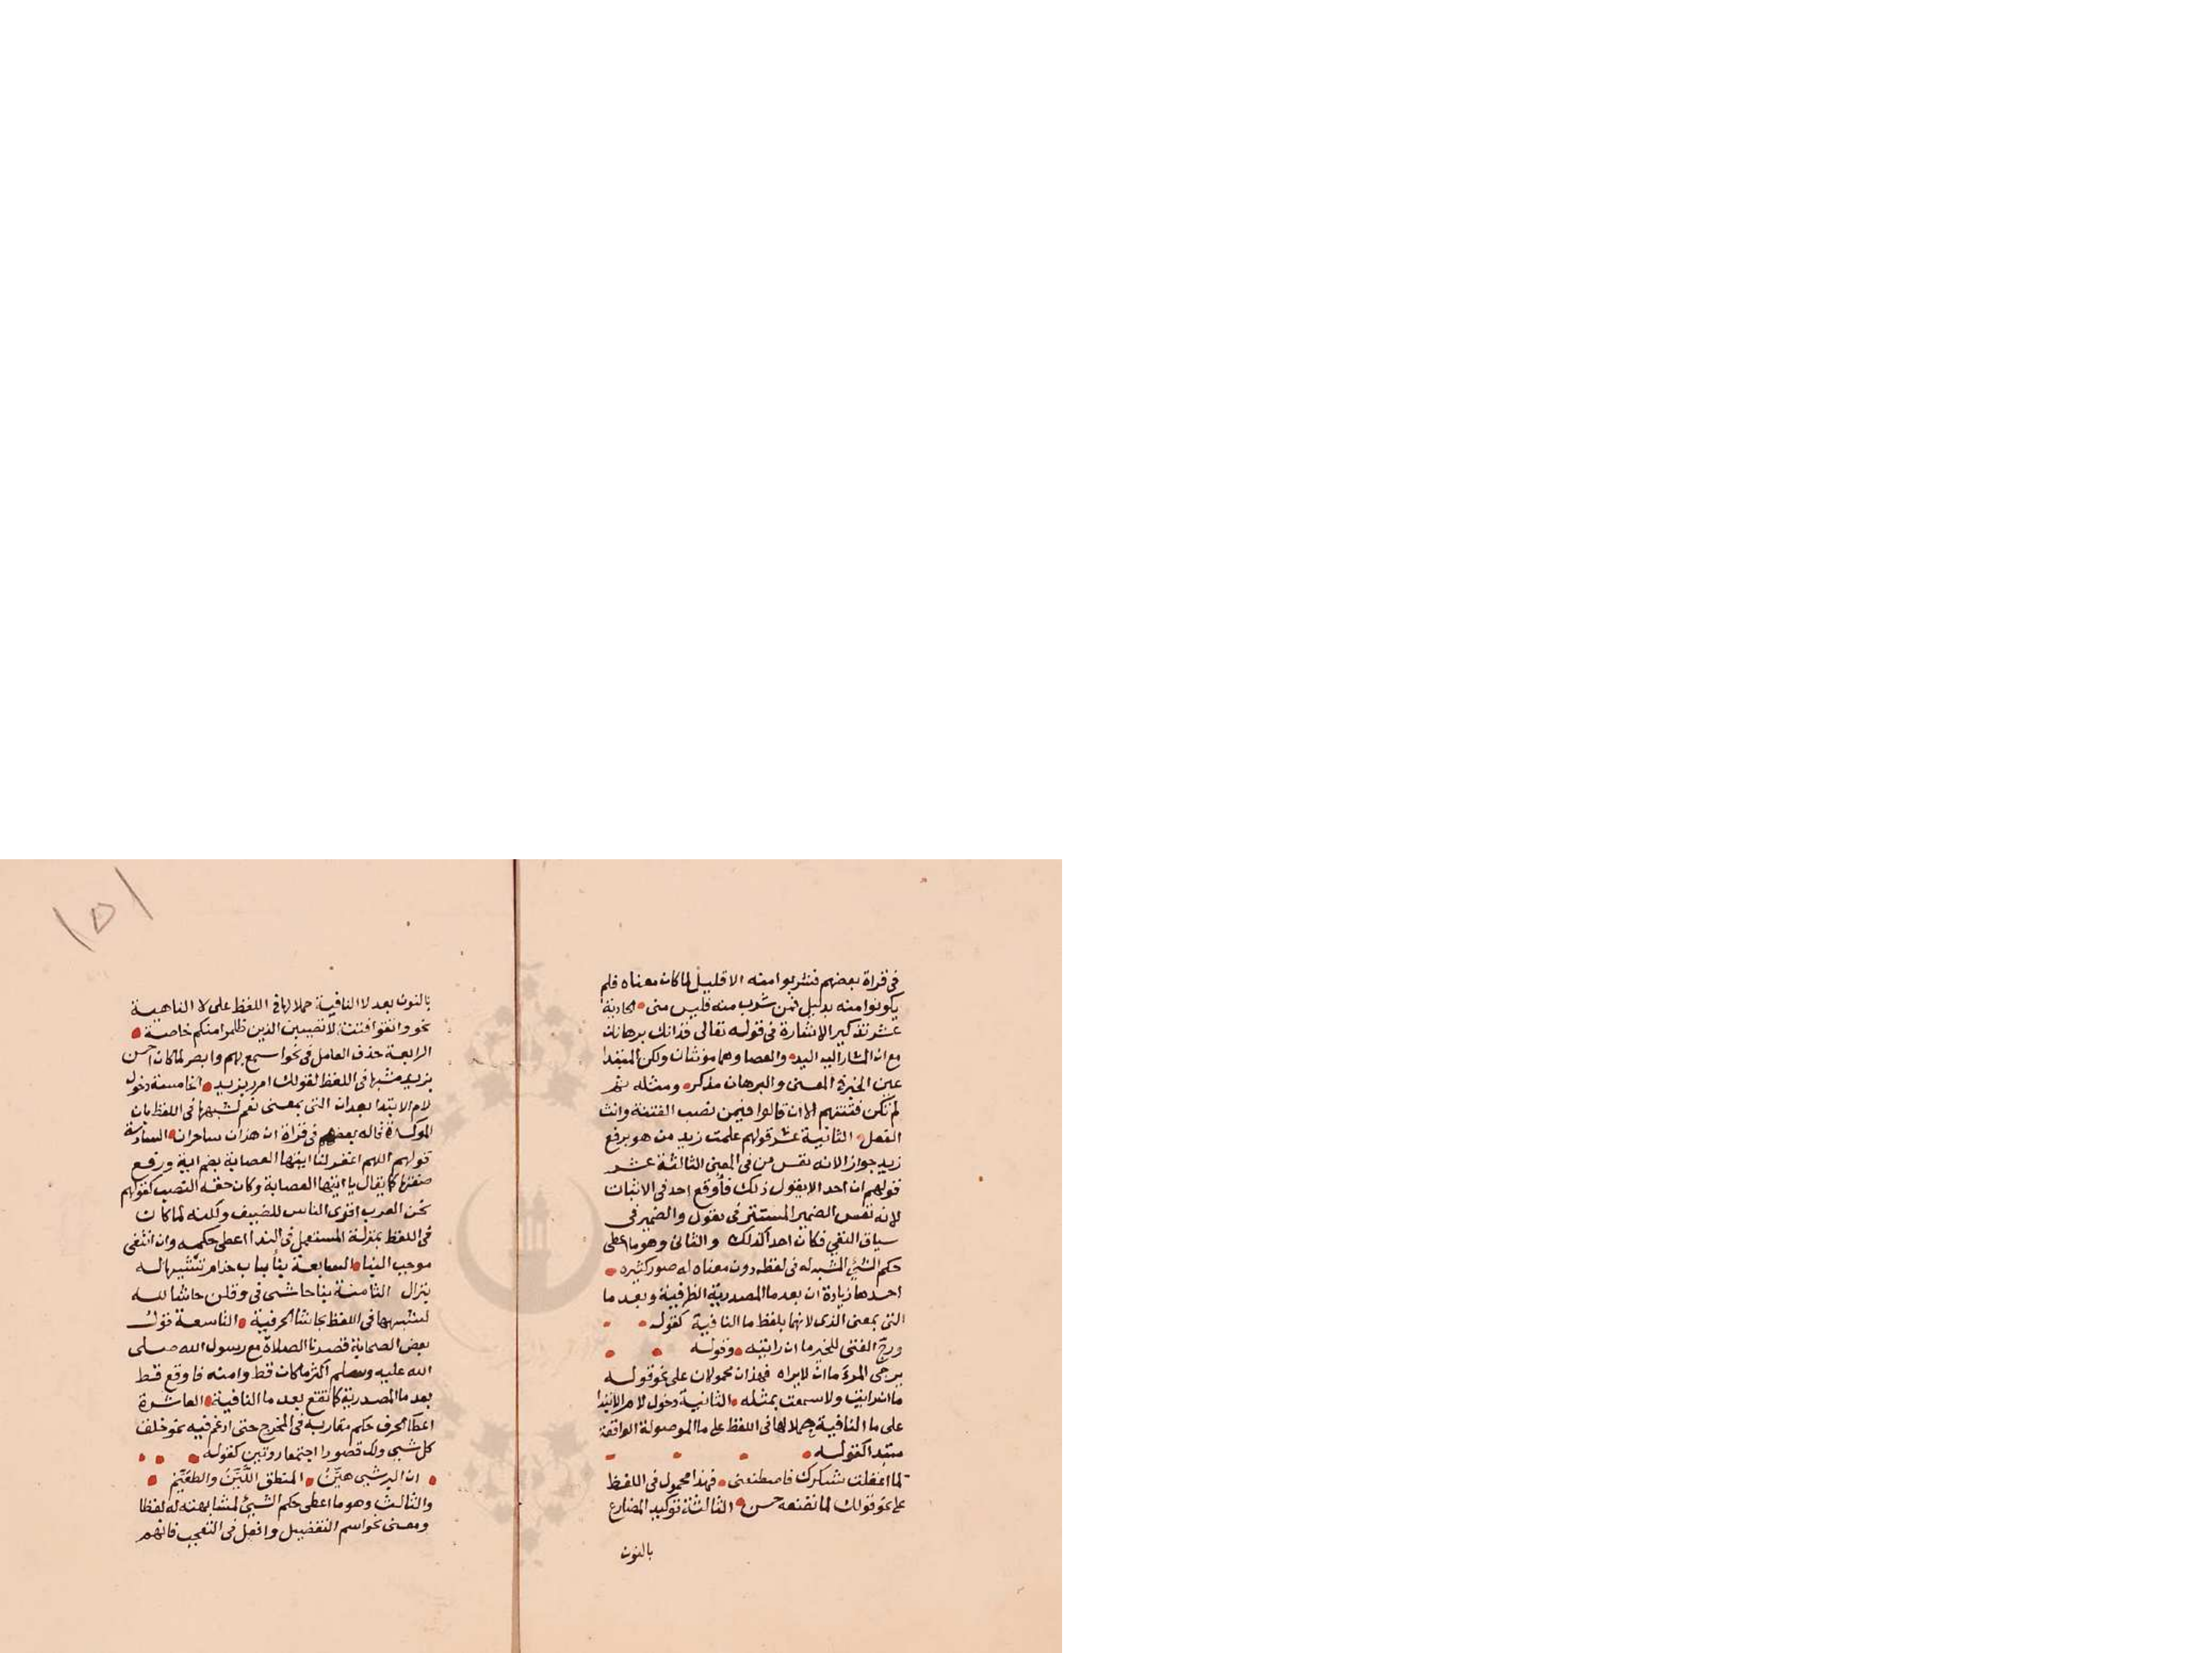 في قراة بعضهم فشربوا منه الا قليل لما كان معناه فلم
يكونوا منه بدليل فمن شرب منه فليس مني الحادية
عشر تذكير الاشارة في قوله تعالى فذانك برهانان
مع ان المشار اليه اليد والعصا وهما مونثان ولكن المبتدا
عين الخبر في المعنى والبرهان مذكر ومثله ثم
لم تكن فتنتهم الا ان قالوا فيمن نصب الفتنة وانث
الفعل الثانية عشر قولهم علمت زيد من هو برفع
زيد جواز الانه نفس من في المعنى الثالثة عشر
قولهم ان احد الا يقول ذلك فاوقع احد في الاثبات
لانه نفس الضمير المستتر في يقول والضمير في
سياق النفي فكان احد كذلك والثاني وهو ما اعطى
حكم الشيئ المشبه له في لفظه دون معناه له صور كثيرة
احدها زيادة ان بعد ما المصدرية الظرفية وبعد ما
التي بمعنى الذي لانهما بلفظ ما النافية كقوله
ورج الفتى للخير ما ان رايته وقوله
يرجى المرء ما ان لا يراه فهذان محمولان على نحو قوله
ما ان رايت ولا سمعت بمثله الثانية دخول لام الابتدا
على ما النافية حملا لها في اللفظ على ما الموصولة الواقعة
مبتدا كقوله
لما اغفلت شكرك فاصطنعني فهذا محمول في اللفظ
على نحو قولك لما تصنعه حسن الثالثة توكيد المضارع
بالنون
١٥١
بالنون بعد لا النافية حملا لها في اللفظ على لا الناهية
نحو واتقوا فتنة لا تصيبن الذين ظلموا منكم خاصة
الرابعة حذف العامل في نحو اسمع بهم وابصر لما كان احسن
بزيد مشبها في اللفظ لقولك امرر بزيد الخامسة دخول
لام الابتدا بعد ان التي بمعنى نعم لشبهها في اللفظ بان
الموكدة قاله بعضهم في قراة ان هذان ساحران السادسة
قولهم اللهم اغفر لنا ايتها العصابة بضم اية ورفع
صفتها كما يقال يا ايتها العصابة وكان حقه النصب كقولهم
نحن العرب اقوى الناس للضيف ولكنه لما كان
في اللفظ بمنزلة المستعمل في الندا اعطى حكمه وان انتفى
موجب البنا السابعة بنا باب حذام تشبيها له
بنزال الثامنة بنا حاشى في وقلن حاشا لله
لشبهها في اللفظ بحاشا الحرفية التاسعة قول
بعض الصحابة قصرنا الصلاة مع رسول الله صلى
الله عليه وسلم اكثر ما كان قط وامنه فاوقع قط
بعد ما المصدرية كما تقع بعد ما النافية العاشرة
اعطا الحرف حكم مقاربه في المخرج حتى ادغم فيه نحو خلق
كل شيى ولك قصورا اجتمعا رويين كقوله
ان البر شيى هيّنُ المنطق اللّيّنُ والطعيّم
والثالث وهو ما اعطى حكم الشيئ لمشابهته له لفظا
ومعنى نحو اسم التفضيل وافعل في التعجب فانهم